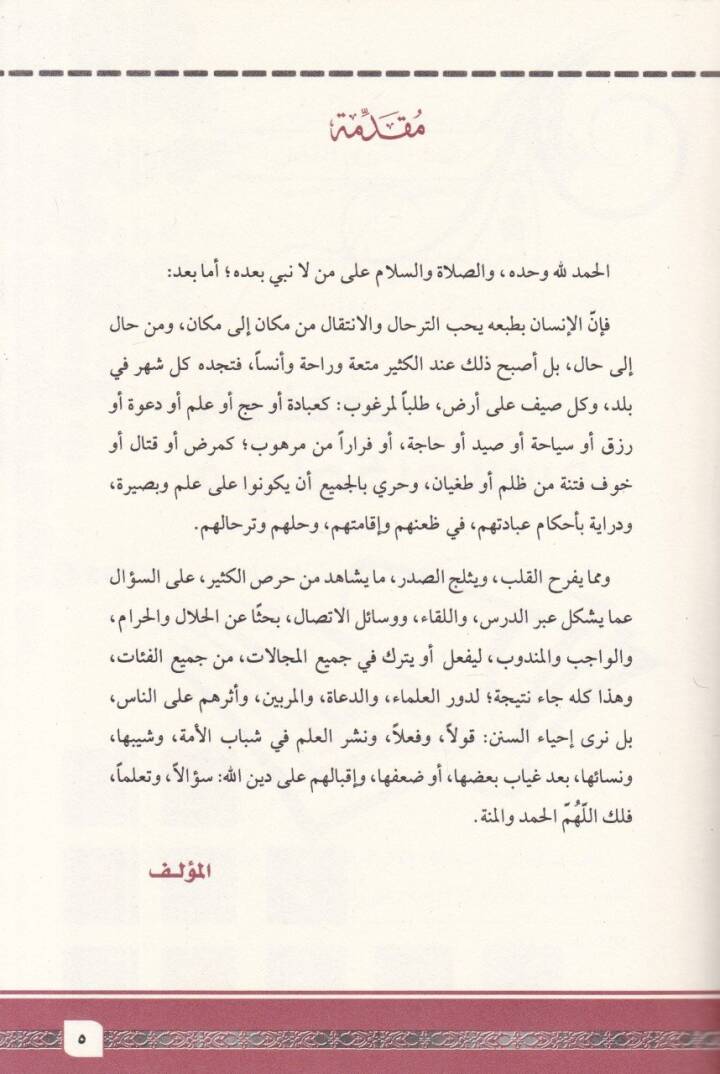 مُقَدِّمة
الحمد لله وحده، والصلاة والسلام على من لا نبي بعده؛ أما بعد:
فإنّ الإنسان بطبعه يحب الترحال والانتقال من مكان إلى مكان، ومن حال
إلى حال، بل أصبح ذلك عند الكثير متعة وراحة وأنساً، فتجده كل شهر في
بلد، وكل صيف على أرض، طلباً لمرغوب: كعبادة أو حج أو علم أو دعوة أو
رزق أو سياحة أو صيد أو حاجة، أو فراراً من مرهوب؛ كمرض أو قتال أو
خوف فتنة من ظلم أو طغيان، وحري بالجميع أن يكونوا على علم وبصيرة،
ودراية بأحكام عبادتهم، في ظعنهم وإقامتهم، وحلهم وترحالهم.
ومما يفرح القلب، ويثلج الصدر، ما يشاهد من حرص الكثير، على السؤال
عما يشكل عبر الدرس، واللقاء، ووسائل الاتصال، بحثًا عن الحلال والحرام،
والواجب والمندوب، ليفعل أو يترك في جميع المجالات، من جميع الفئات،
وهذا كله جاء نتيجة؛ لدور العلماء، والدعاة، والمربين، وأثرهم على الناس،
بل نرى إحياء السنن: قولاً، وفعلاً، ونشر العلم في شباب الأمة، وشيبها،
ونسائها، بعد غياب بعضها، أو ضعفها، وإقبالهم على دين الله: سؤالاً، وتعلماً،
فلك اللّهُمّ الحمد والمنة.
المؤلف
٥